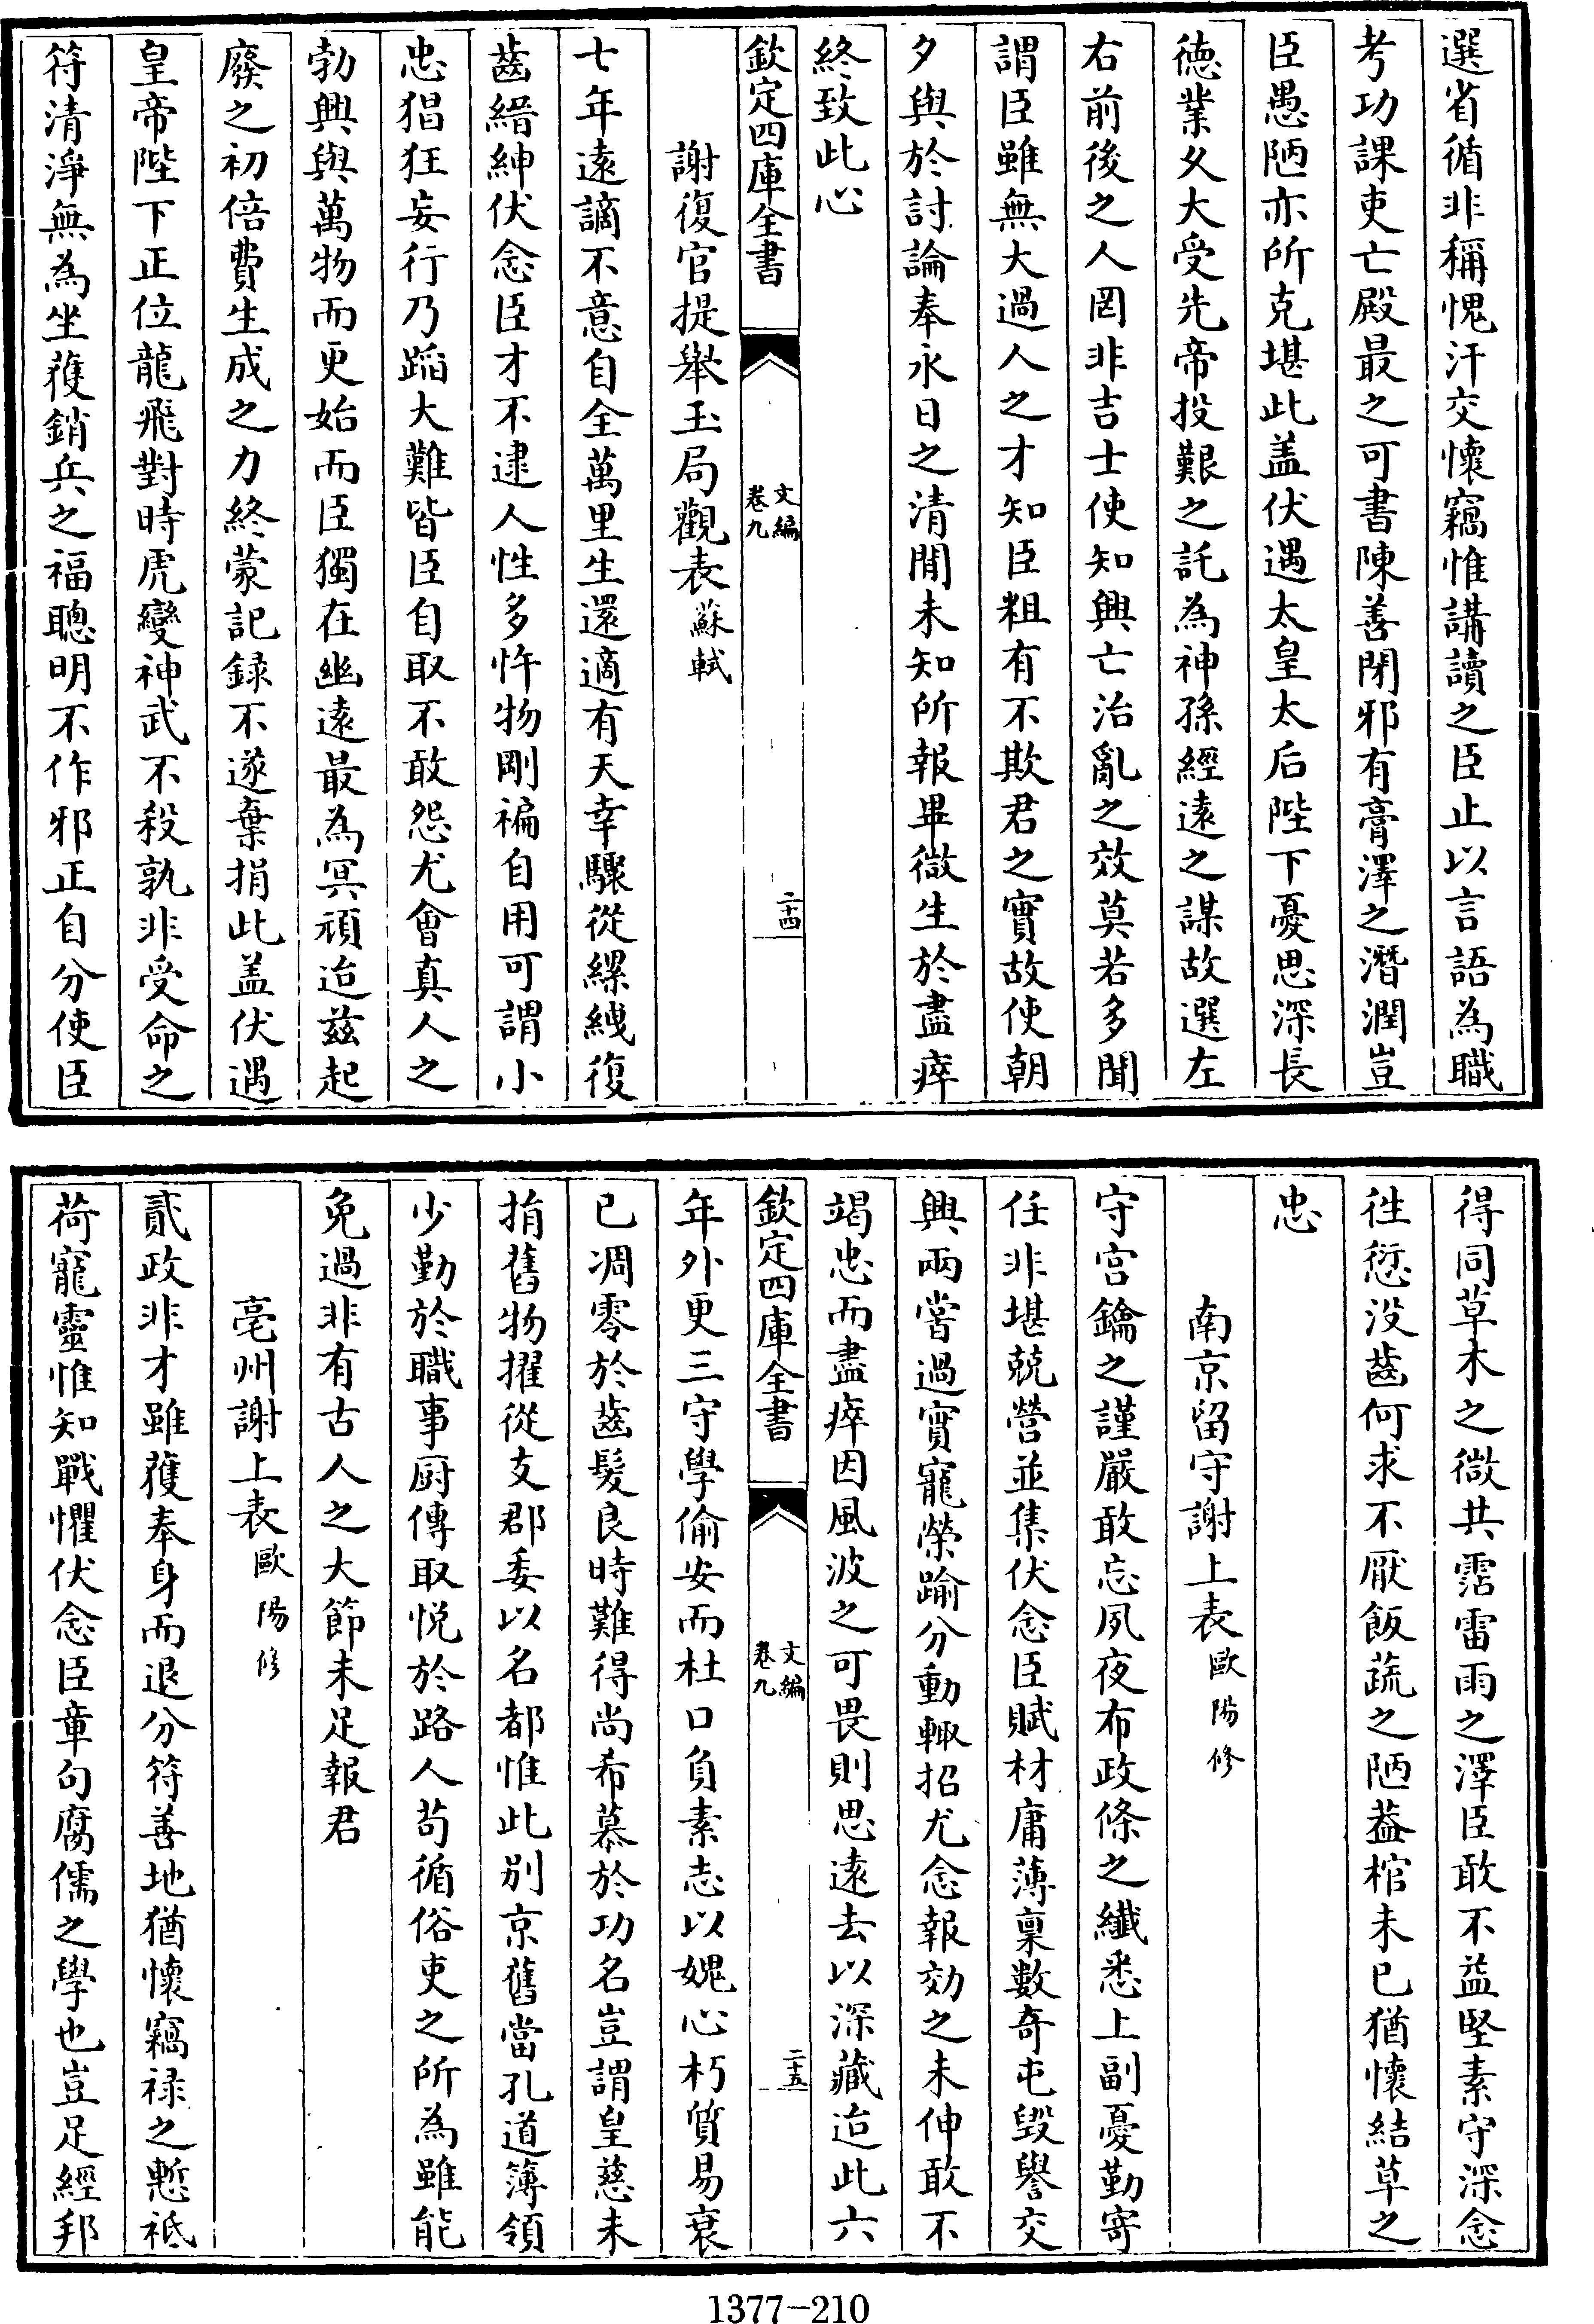 選省循非稱愧汗交懷竊惟講讀之臣止以言語為職
考功課吏亡殿最之可書陳善閉邪有膏澤之潛潤豈
臣愚陋亦所克堪此盖伏遇太皇太后陛下憂思深長
徳業久大受先帝投艱之託為神孫經逺之謀故選左
右前後之人罔非吉士使知興亡治亂之效莫若多聞
謂臣雖無大過人之才知臣粗有不欺君之實故使朝
夕與於討論奉永日之清閒未知所報畢微生於盡瘁
終致此心
欽定四庫全書
文編
卷九
二十四
謝復官提舉玉局觀表蘇軾
七年逺謫不意自全萬里生還適有天幸驟從縲絏復
齒縉紳伏念臣才不逮人性多忤物剛褊自用可謂小
忠猖狂妄行乃蹈大難皆臣自取不敢怨尤會真人之
勃興與萬物而更始而臣獨在幽逺最為冥頑迨兹起
廢之初倍費生成之力終蒙記録不遂棄捐此盖伏遇
皇帝陛下正位龍飛對時虎變神武不殺孰非受命之
符清淨無為坐獲銷兵之福聰明不作邪正自分使臣
得同草木之微共霑雷雨之澤臣敢不益堅素守深念
往愆没齒何求不厭飯蔬之陋葢棺未已猶懷結草之
忠
南京留守謝上表歐陽修
守宫鑰之謹嚴敢忘夙夜布政條之纎悉上副憂勤寄
任非堪兢營並集伏念臣賦材庸薄禀數奇屯毁譽交
興兩嘗過實寵榮踰分動輙招尤念報効之未伸敢不
竭忠而盡瘁因風波之可畏則思逺去以深藏迨此六
欽定四庫全書
文編
卷九
二十五
年外更三守學偷安而杜口負素志以媿心朽質易衰
已凋零於齒髮良時難得尚希慕於功名豈謂皇慈未
捐舊物擢從支郡委以名都惟此别京舊當孔道簿領
少勤於職事厨傳取悦於路人茍循俗吏之所為雖能
免過非有古人之大節未足報君
亳州謝上表歐陽修
貳政非才雖獲奉身而退分符善地猶懷竊禄之慙祗
荷寵靈惟知戰懼伏念臣章句腐儒之學也豈足經邦
1377-210